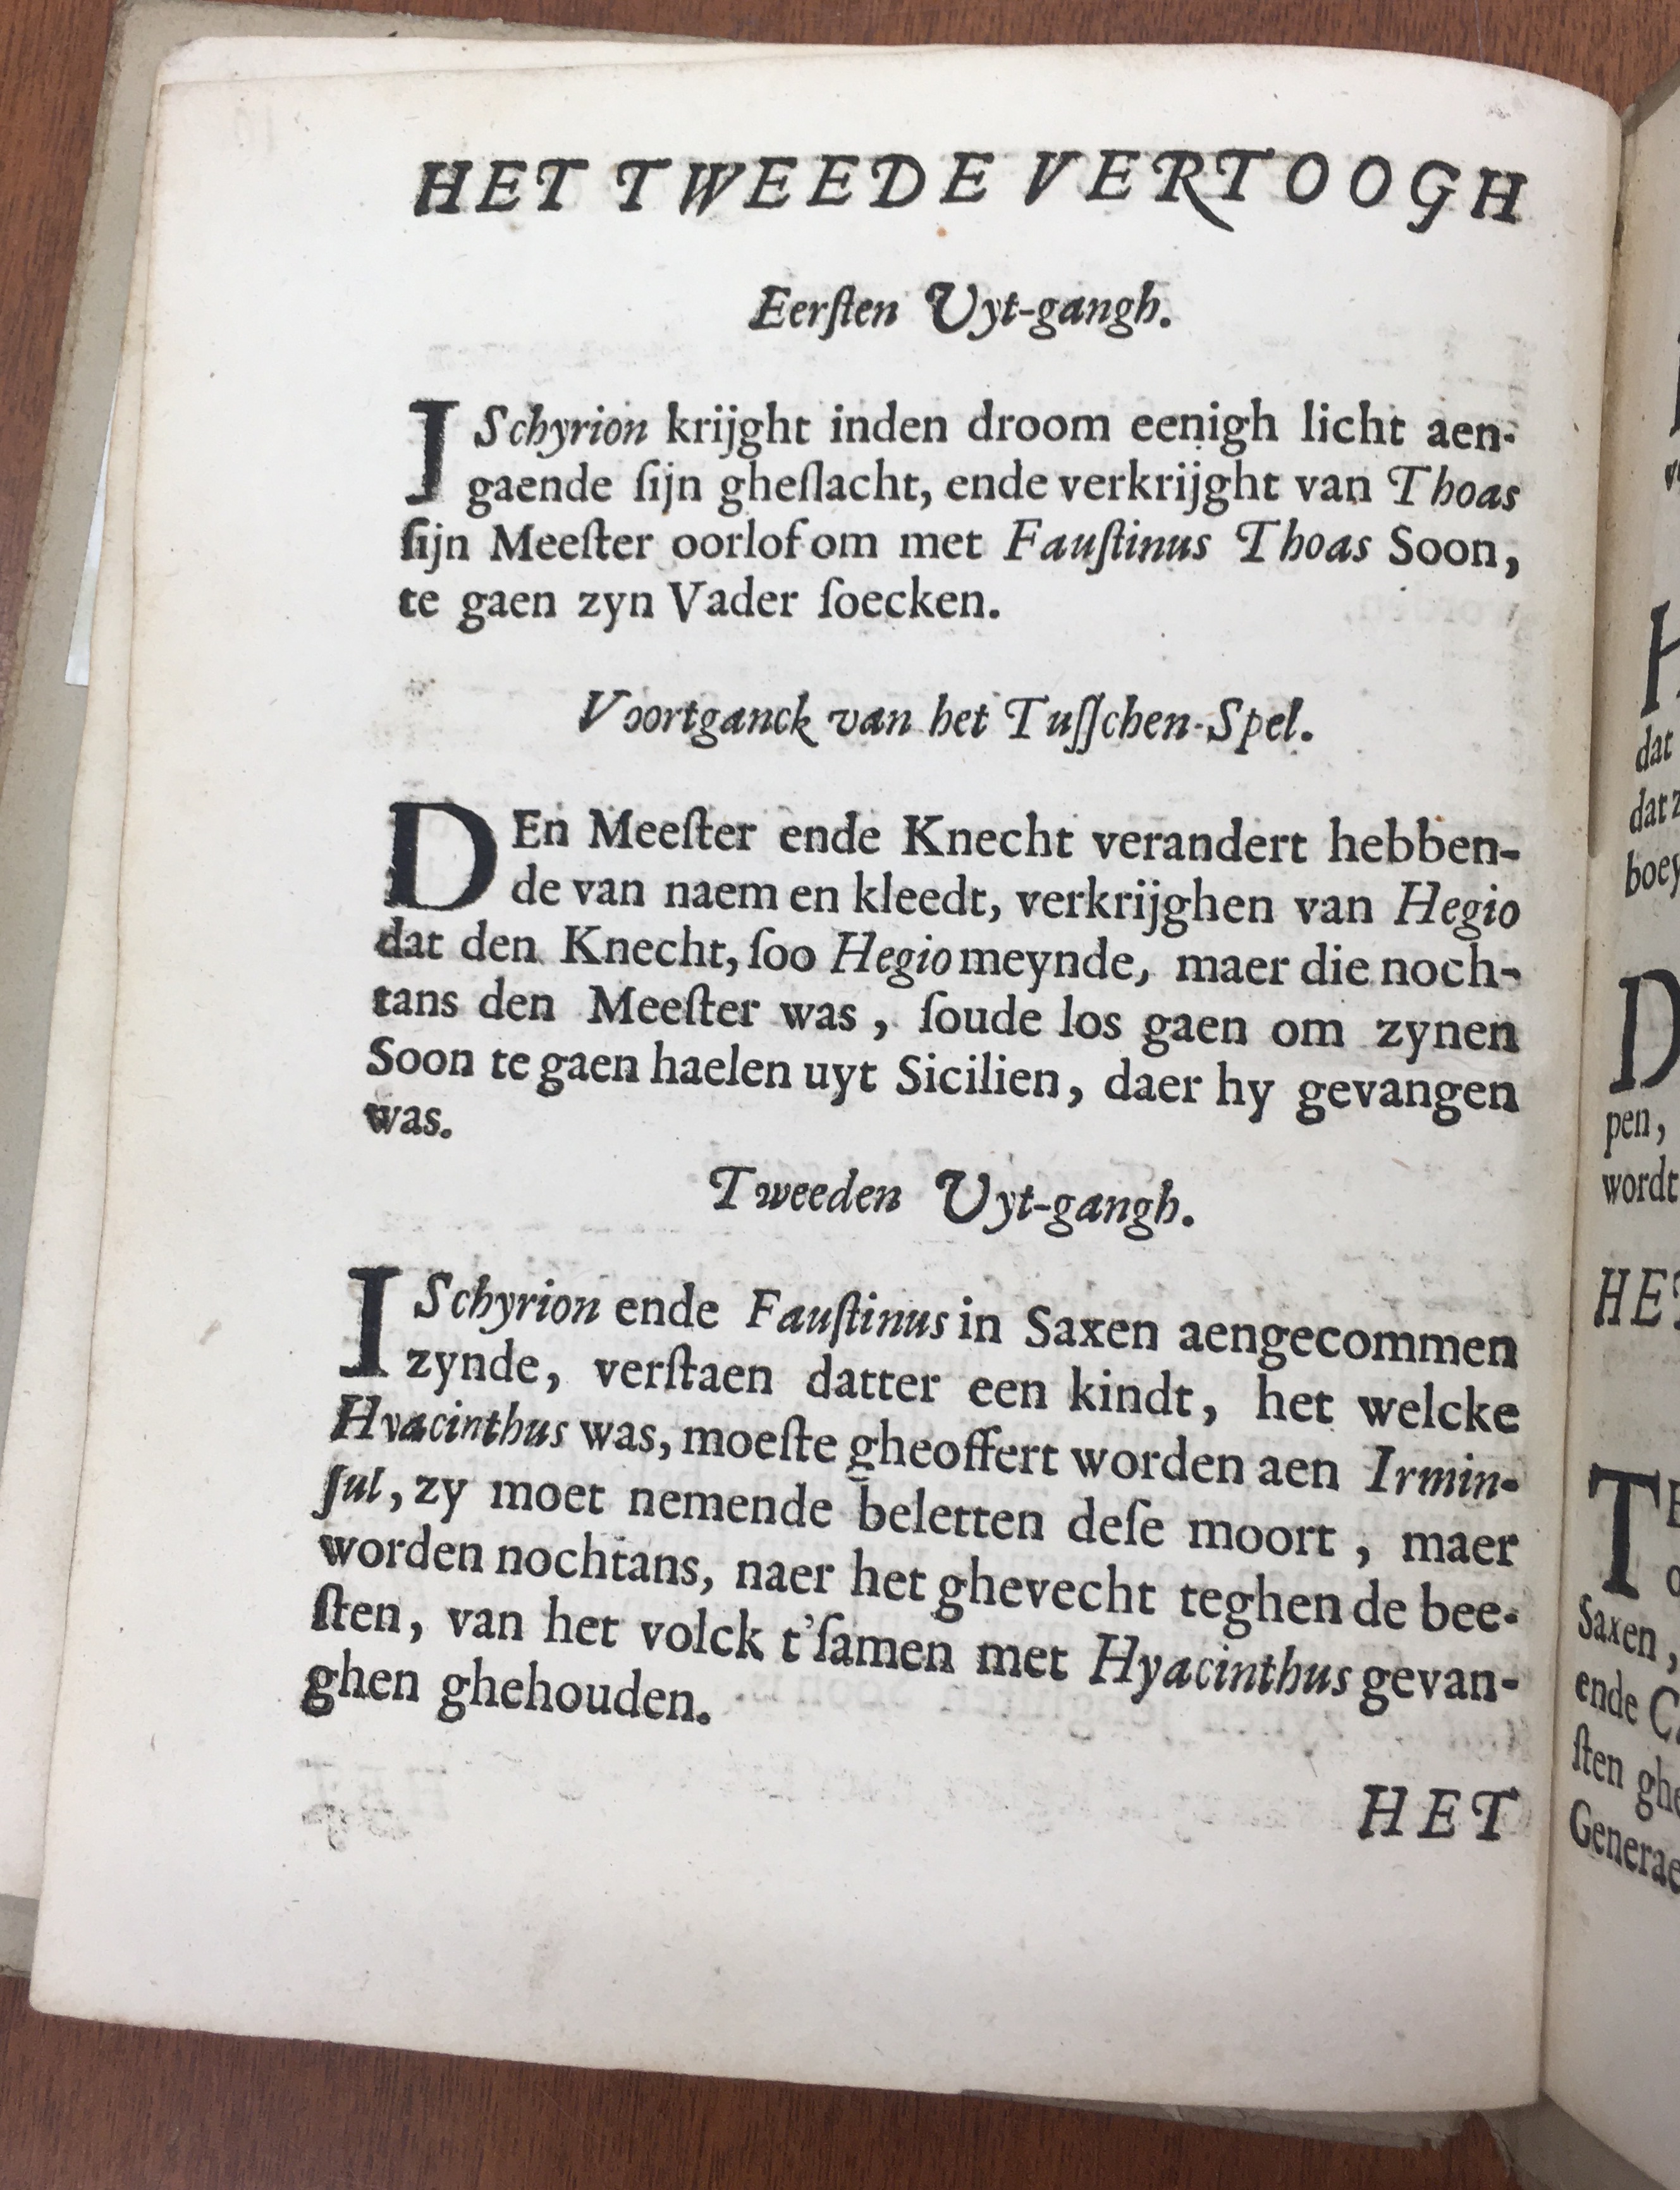 HET TWEEDE VERTOOGH
Eerſten Uyt-gangh.
ISchyrion krijght inden droom eenigh licht aen-
gaende ſijn gheſlacht, ende verkrijght van Thoas
ſijn Meeſter oorlof om met Fauſtinus Thoas Soon,
te gaen zyn Vader ſoecken.
Voortganck van het Tuſſchen-Spel.
DEn Meeſter ende Knecht verandert hebben-
de van naem en kleedt, verkrijghen van Hegio
dat den Knecht, ſoo Hegio meynde, maer die noch-
tans den Meeſter was, ſoude los gaen om zynen
Soon te gaen haelen uyt Sicilien, daer hy gevangen
was.
Tweeden Uyt-gangh.
ISchyrion ende Fauſtinus in Saxen aengecommen
zynde, verſtaen datter een kindt, het welcke
Hyacinthus was, moeſte gheoffert worden aen Irmin-
ſul, zy moet nemende beletten deſe moort, maer
worden nochtans, naer het ghevecht teghen de bee-
ſten, van het volck t'ſamen met Hyacinthus gevan-
ghen ghehouden.
HET
dat
boey
pen,
wordt
Saxen,
ende
ſten
Generae